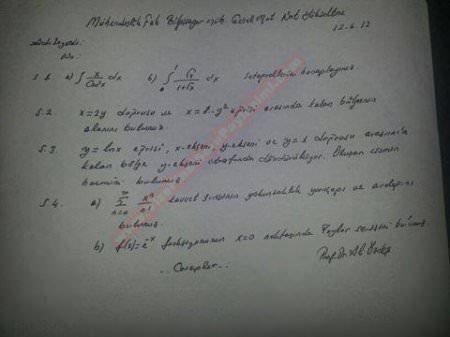 Mühendislik Fak. Bilgisayar müh.
12.6.12
S.1. a) ∫ x/Cos²x dx b) ∫₀¹ √x/(1+√x) dx integrallerini hesaplayınız
S.2. x=2y doğrusu ve x=8-y² eğrisi arasında kalan bölgenin
alanını bulunuz.
S.3. y=lnx eğrisi, x-ekseni, y-ekseni ve y=1 doğrusu arasında
kalan bölge y-ekseni etrafında döndürülüyor. Oluşan cismin
hacmini bulunuz.
S.4. a) ∑ n=0 ∞ xⁿ/n! kuvvet serisinin yakınsaklık yarıçapı ve aralığını
bulunuz.
b) f(x)=e⁻ˣ fonksiyonunun x=0 noktasında Taylor serisini bulunuz.
Prof.Dr.
.. Cevaplar ..